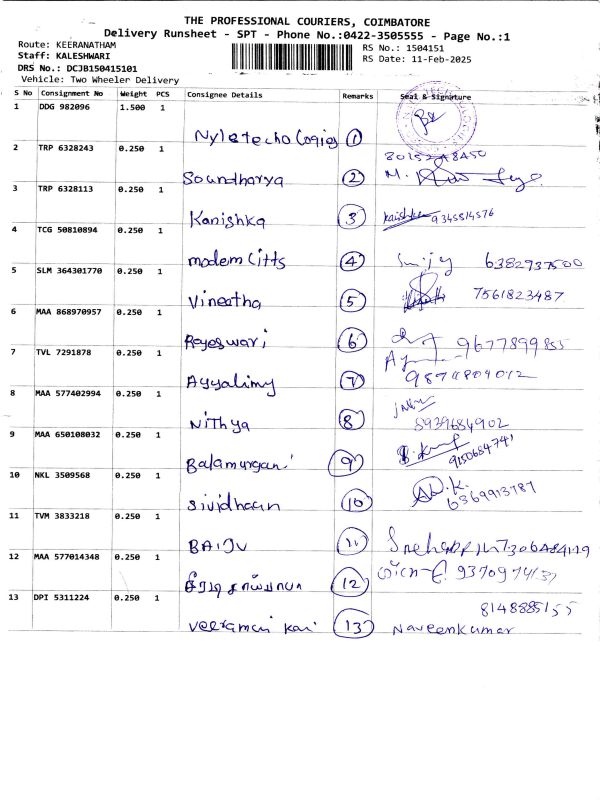 THE PROFESSIONAL COURIERS, COIMBATORE
Delivery Runsheet - SPT - Phone No.:0422-3505555 - Page No.:1
Route: KEERANATHAM
RS No.: 1504151
Staff: KALESHWARI
RS Date: 11-Feb-2025
DRS No.: DCJB150415101
Vehicle: Two Wheeler Delivery
S No Consignment No Weight PCS Consignee Details Remarks Seal & Signature
1 DDG 982096 1.500 1
Nyletechologies 1
2 TRP 6328243 0.250 1
Soundharya 2 M.
3 TRP 6328113 0.250 1
Kanishka 3 9345814576
4 TCG 50810894 0.250 1
modern Citts 4 6382937500
5 SLM 364301770 0.250 1
Vineetha 5 7561823487
6 MAA 868970957 0.250 1
Rajeswari 6 9677899855
7 TVL 7291878 0.250 1
Ayyalimy 7
8 MAA 577402994 0.250 1
Nithya 8 8939684902
9 MAA 650108032 0.250 1
Balamurgani 9 9150684741
10 NKL 3509568 0.250 1
Sividharan 10 6369913787
11 TVM 3833218 0.250 1
BAIJU 11
12 MAA 577014348 0.250 1
12
13 DPI 5311224 0.250 1
8148885155
Veeramani 13 Naveenkumar